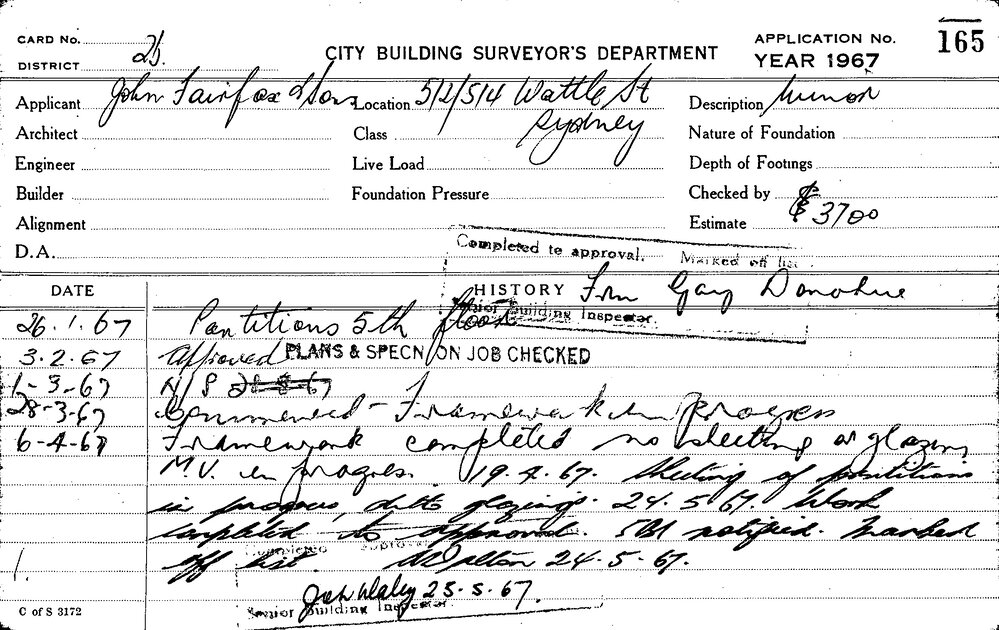 CARD No.
DISTRICT 2b.
CITY BUILDING SURVEYOR'S DEPARTMENT
APPLICATION No. 165
YEAR 1967
Applicant John Fairfax & Sons Location 512/514 Wattle St Description Minor
Architect Class Sydney Nature of Foundation
Engineer Live Load Depth of Footings
Builder Foundation Pressure Checked by
Alignment Estimate $ 3700
D.A. Completed to approval. Marked off list.
DATE HISTORY Frm Donohue
Senior Building Inspector.
26.1.67 Partitions 5th floor
3.2.67 Approved PLANS & SPECN ON JOB CHECKED
1-3-67 N/S
28-3-67 Commenced - Framework in progress
6-4-67 Framework completed no sheeting or glazing
M.V. in progress. 19.4.67. Sheeting of partitions
in progress, ditto glazing. 24.5.67. Work
completed to approval. SBI notified. Marked
off list. 24-5-67.
Completed approval
1.
25-5-67.
C of S 3172
Senior Building Inspector.